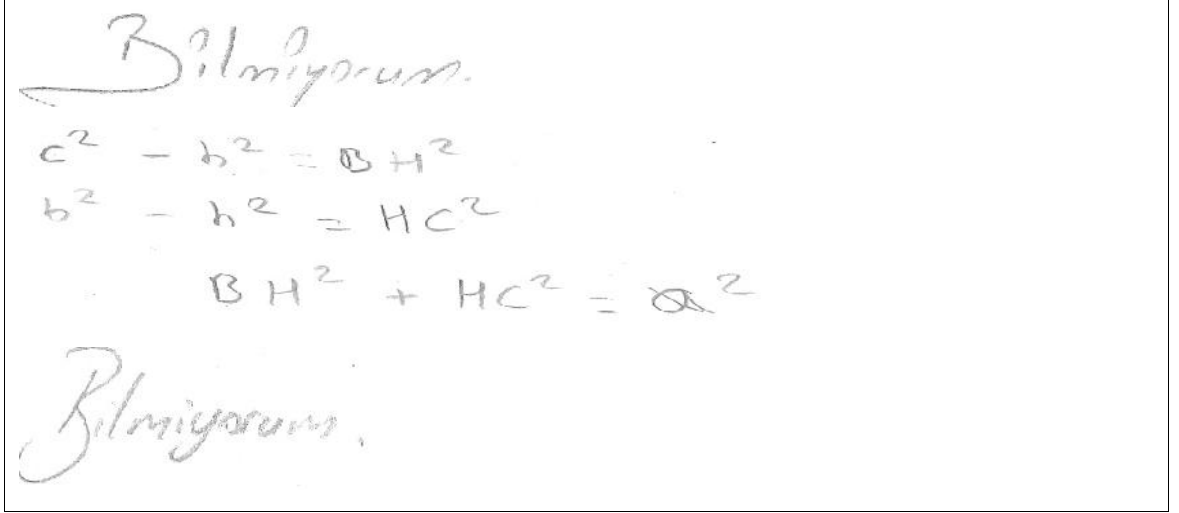 Bilmiyorum.
c² - h² = BH²
b² - h² = HC²
BH² + HC² = a²
Bilmiyorum.